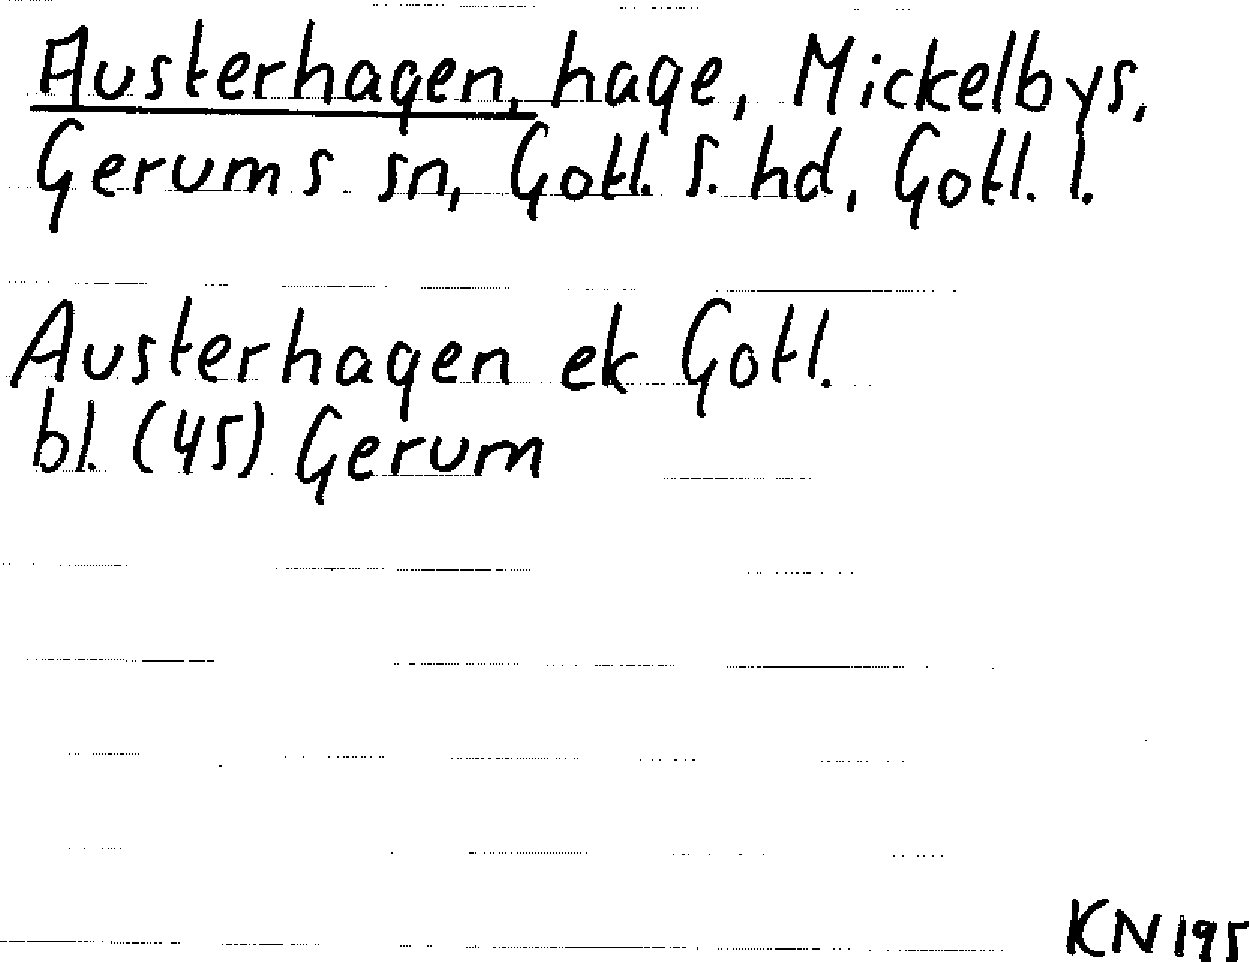 Austerhagen, hage, Mickelbys,
Gerums sn, Gotl. S. hd, Gotl. l.
Austerhagen ek Gotl.
bl. (45) Gerum
KN 195